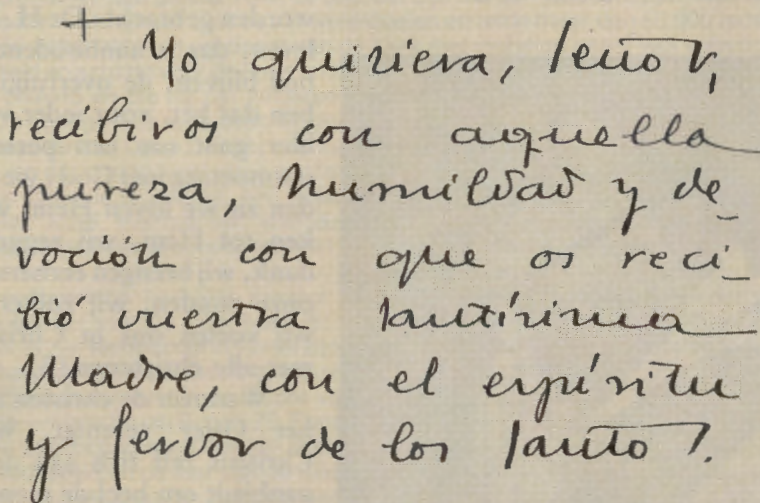 + Yo quisiera, Señor,
recibiros con aquella
pureza, humildad y de_
voción con que os reci_
bió vuestra Santísima
Madre, con el espíritu
y fervor de los Santos.